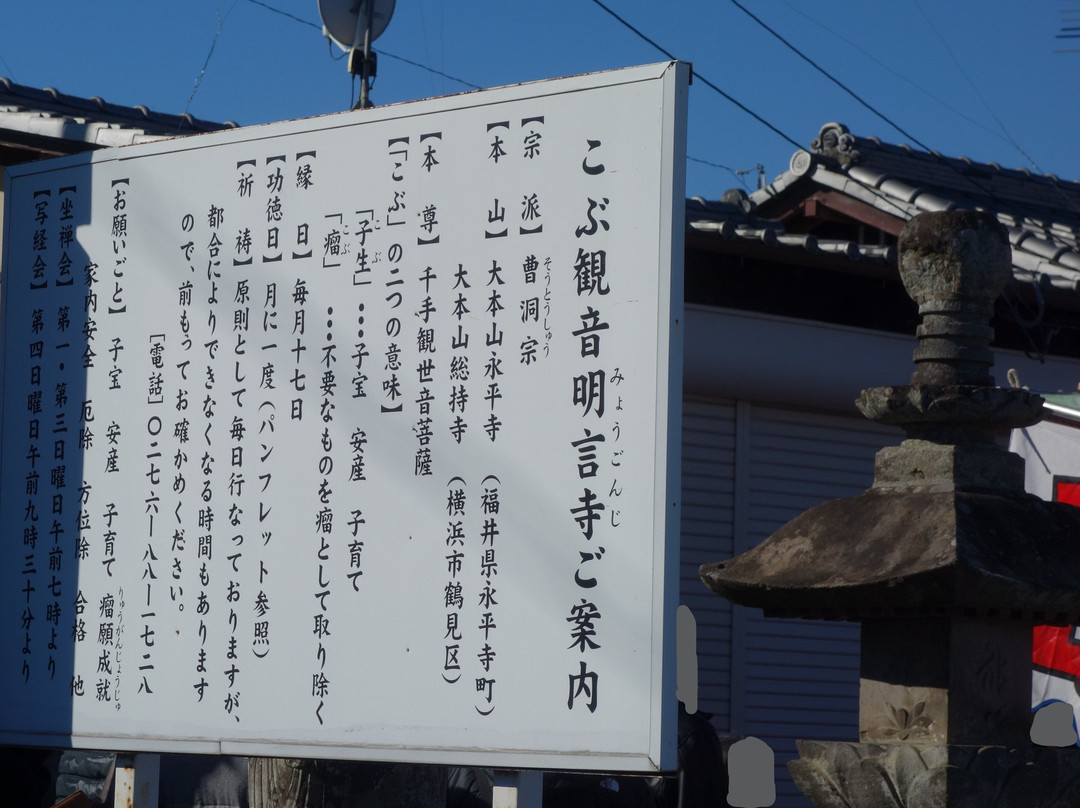 こぶ観音明言寺ご案内
みょうごんじ
【宗　派】曹洞宗
そうとうしゅう
【本　山】大本山永平寺　（福井県永平寺町）
大本山総持寺　（横浜市鶴見区）
【本　尊】千手観世音菩薩
【「こぶ」の二つの意味】
「子生」…子宝　安産　子育て
こ　ぶ
「瘤」　…不要なものを瘤として取り除く
こぶ
【縁　日】毎月十七日
【功徳日】月に一度（パンフレット参照）
【祈　祷】原則として毎日行なっておりますが、
都合によりできなくなる時間もあります
ので、前もってお確かめください。
［電話］〇二七六ー八八ー一七二八
【お願いごと】子宝　安産　子育て　瘤願成就
りゅうがんじょうじゅ
家内安全　厄除　方位除　合格　他
【坐禅会】第一・第三日曜日午前七時より
【写経会】第四日曜日午前九時三十分より